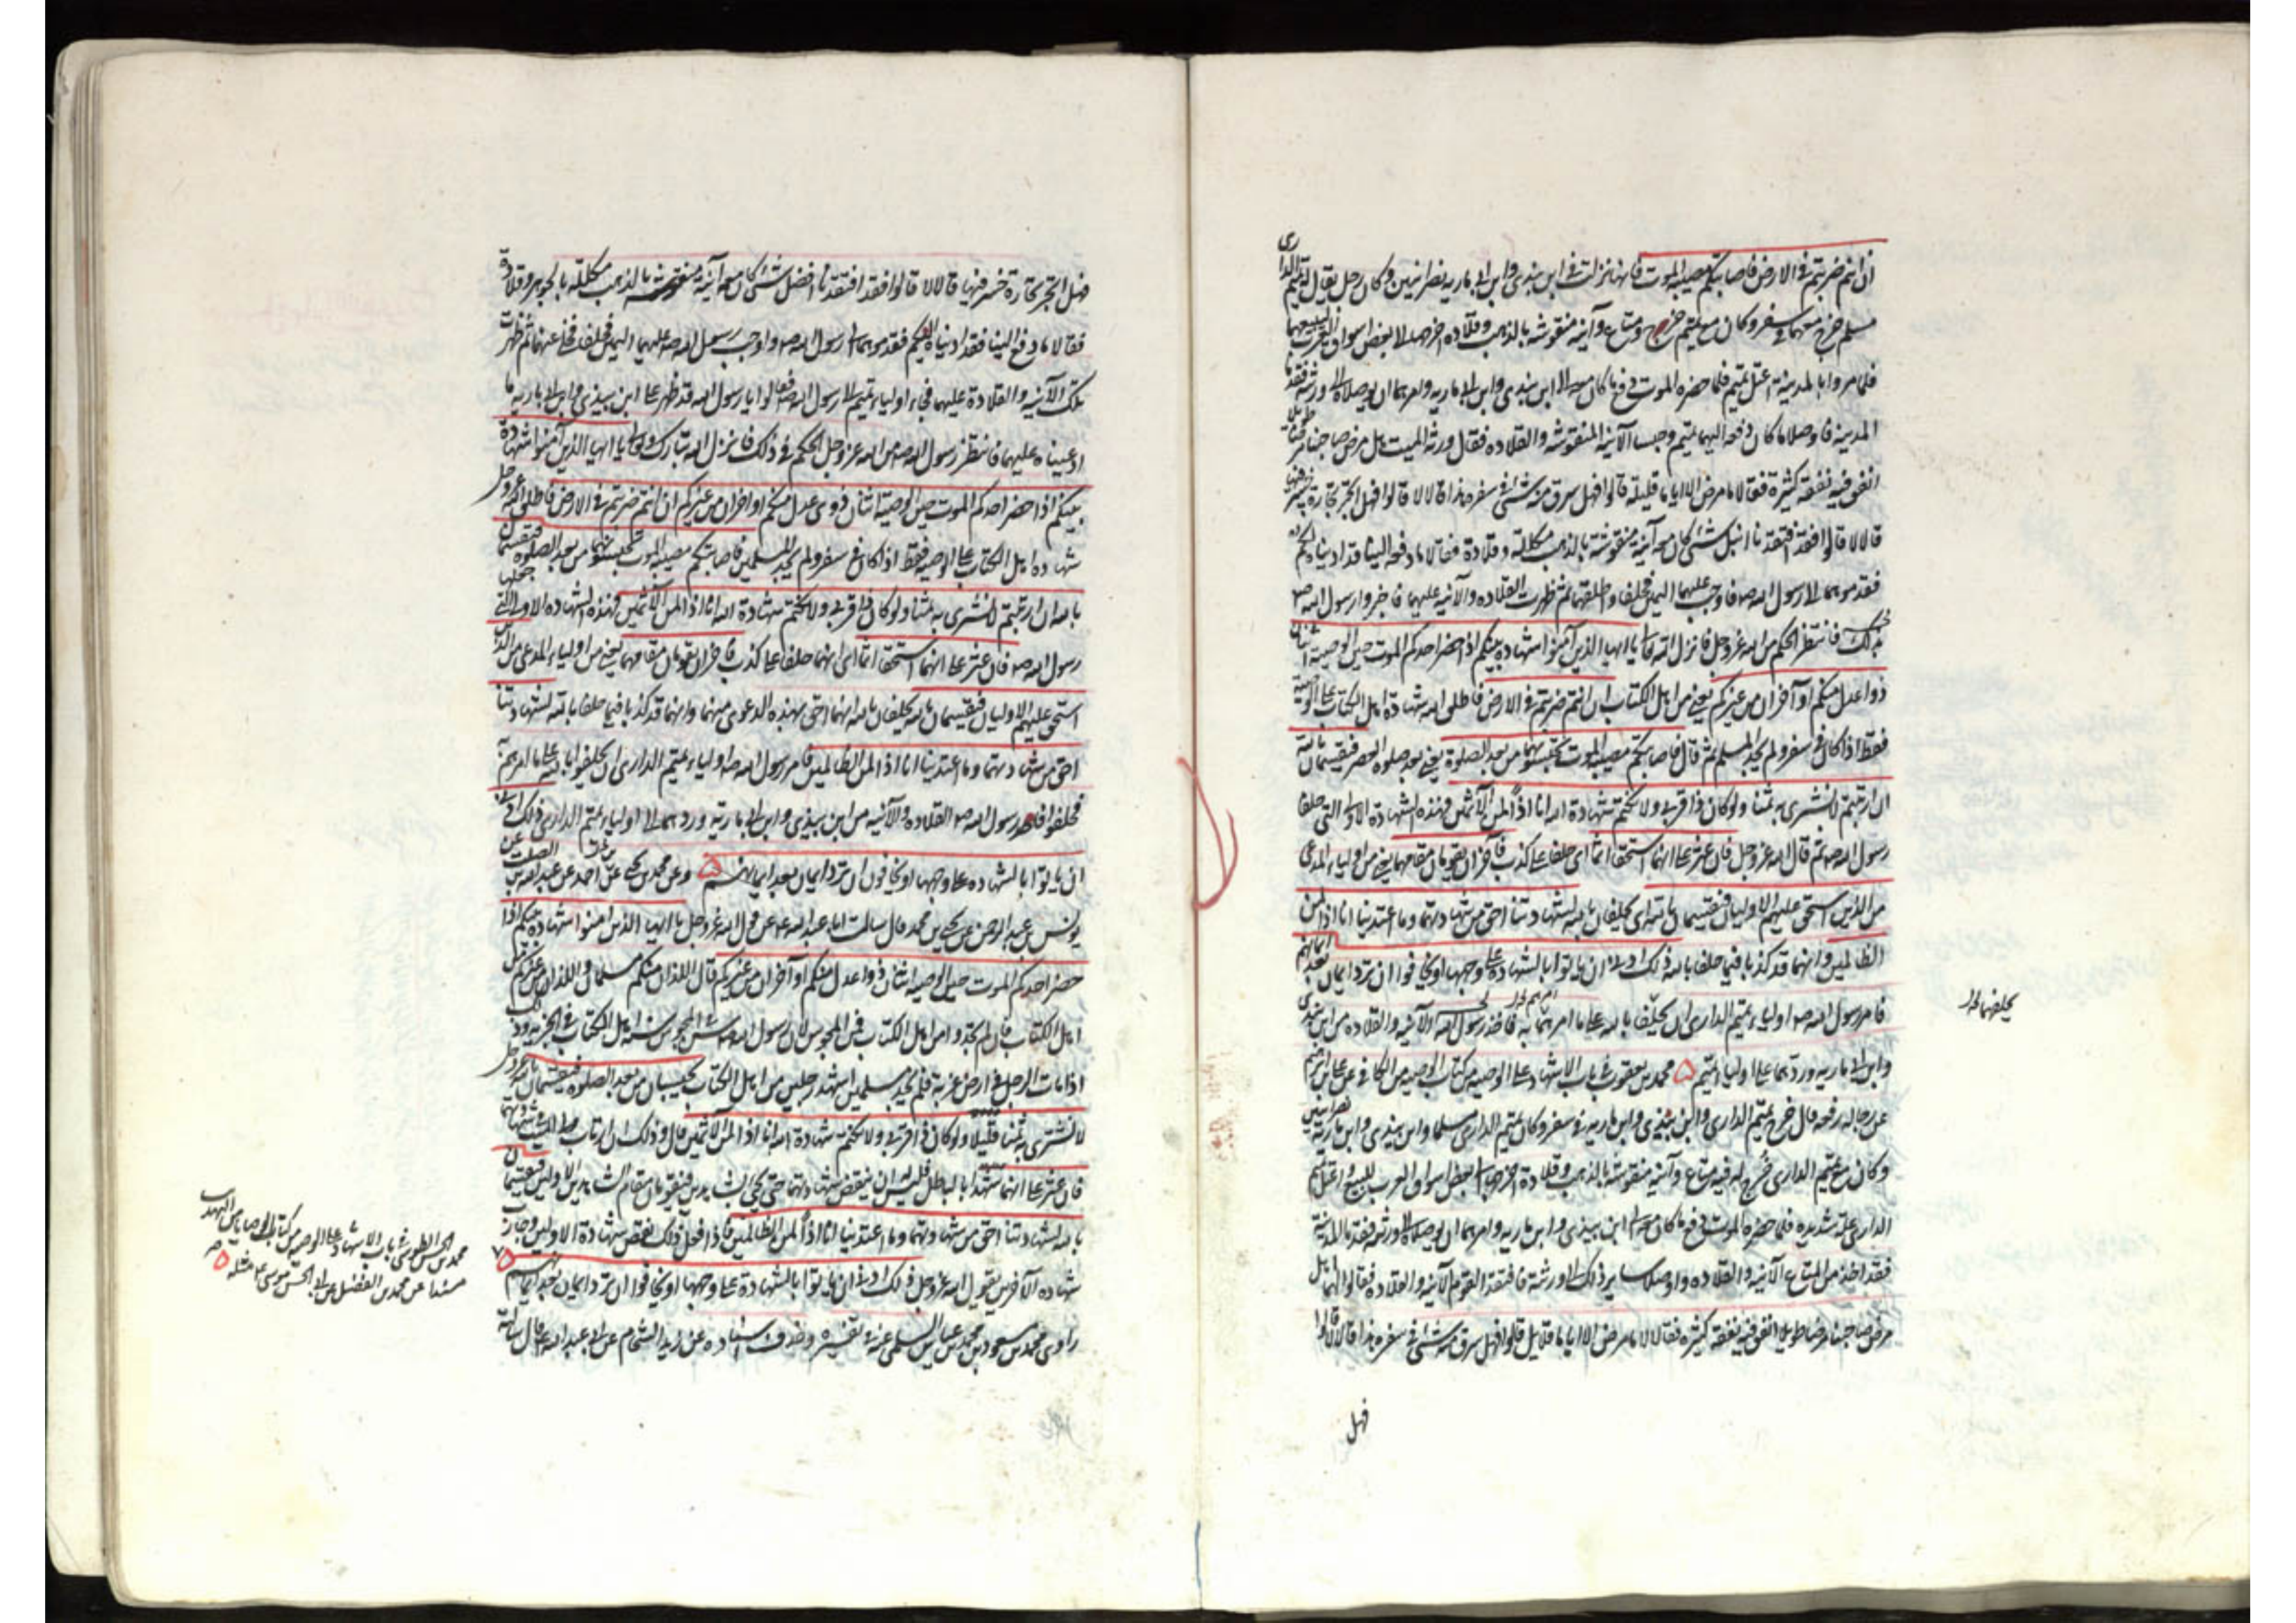 ان انتم ضربتم فى الارض فاصابتكم مصيبة الموت فانها نزلت فى ابن بندى وابن ابى ماريه نصرانيين وكان رجل يقال له تميم الدارى
مسلم خرج معهما فى سفر وكان مع تميم خرج ومتاع وآنيه منقوشه بالذهب وقلاده اخرجها الى بعض اسواق العرب ليبيعها
فلما مروا بالمدينة اعتل تميم فلما حضره الموت دفع ما كان معه الى ابن بندى وابن ابى ماريه وامرهما ان يوصلاه الى ورثته فقدما
المدينه فاوصلا ما كان دفعه اليهما تميم وحبسا الآنيه المنقوشه والقلاده فقال ورثة الميت هل مرض صاحبنا مرضا طويلا
انفق فيه نفقة كثيرة فقالا ما مرض الا اياما قليلة قالوا فهل سرق منه شئ فى سفره هذا قالا لا قالوا فهل اتجر تجارة خسر فيها
قالا لا قالوا فقد افتقدنا انبل شئ كان معه آنية منقوشة بالذهب مكللة وقلادة فقالا ما دفعه الينا قد اديناه اليكم
فقدموهما الى رسول الله صه فاوجب عليهما اليمين فحلفا واطلقهما ثم ظهرت القلاده والآنيه عليهما فاخبروا رسول الله صه
بذلك فانتظر الحكم من الله عز وجل فانزل الله تعالى يا ايها الذين آمنوا شهادة بينكم اذا حضر احدكم الموت حين الوصية اثنان
ذوا عدل منكم او آخران من غيركم يعنى من اهل الكتاب ان انتم ضربتم فى الارض فاطلق الله شهادة اهل الكتاب على الوصية
فقط اذا كان فى سفر ولم يجد المسلم ثم قال فاصابتكم مصيبة الموت تحبسونهما من بعد الصلوة يعنى بعد صلوة العصر فيقسمان بالله
ان ارتبتم لا نشترى به ثمنا ولو كان ذا قربى ولا نكتم شهادة الله انا اذا لمن الآثمين فهذه الشهادة الاولى التى حلفا
رسول الله صه ثم قال الله عز وجل فان عثر على انهما استحقا اثما اى حلفا على كذب فآخران يقومان مقامهما يعنى من اولياء المدعى
من الذين استحق عليهم الاوليان فيقسمان بالله اى يحلفان بالله لشهادتنا احق من شهادتهما وما اعتدينا انا اذا لمن
الظالمين وانهما قد كذبا فيما حلفا بالله ذلك ادنى ان ياتوا بالشهادة على وجهها او يخافوا ان ترد ايمان بعد ايمانهم
فامر رسول الله صه اولياء تميم الدارى ان يحلفوا بالله على ما امرهم به فاخذ رسول الله الآنيه والقلاده من ابن بندى
وابن ابى ماريه وردهما على اولياء تميم محمد بن يعقوب فى باب الاشهاد على الوصيه من كتاب الوصيه من الكافى عن على بن ابراهيم
عن رجاله رفعه قال خرج تميم الدارى وابن بيذى وابن ماريه فى سفر وكان تميم الدارى مسلما وابن بيذى وابن ماريه نصرانيين
وكان مع تميم الدارى خرج له فيه متاع وآنيه منقوشه بالذهب وقلادة اخرجها الى بعض اسواق العرب للبيع فاعتل تميم
الدارى علة شديده فلما حضره الموت دفع ما كان معه الى ابن بيذى وابن ماريه وامرهما ان يوصلاه الى ورثته فقدما المدينة
فقد اخذا من المتاع الآنيه والقلاده واوصلا ساير ذلك الى ورثته فافتقد القوم الآنيه والقلاده فقالوا لهما هل
مرض صاحبنا مرضا طويلا انفق فيه نفقة كثيره فقالا لا ما مرض الا اياما قلايل قالوا فهل سرق منه شئ فى سفره هذا قالا لا قالوا
فهل
فهل اتجر تجارة خسر فيها قالا لا قالوا فقد افتقدنا افضل شئ كان معه آنيه منقوشه بالذهب مكللة بالجوهر وقلادة
فقالا ما دفع الينا فقد اديناه اليكم فقدموهما الى رسول الله صه واوجب رسول الله صه عليهما اليمين فحلفا فخلى عنهما ثم ظهرت
تلك الآنيه والقلادة عليهما فجاء اولياء تميم الى رسول الله صه فقالوا يا رسول الله قد ظهر على ابن بيذى وابن ابى ماريه ما
ادعيناه عليهما فانتظر رسول الله صه من الله عز وجل الحكم فى ذلك فانزل الله تبارك وتعالى يا ايها الذين آمنوا شهادة
بينكم اذا حضر احدكم الموت حين الوصية اثنان ذوى عدل منكم او آخران من غيركم ان انتم ضربتم فى الارض فاطلق الله عز وجل
شهادة اهل الكتاب على الوصيه فقط اذا كان فى سفر ولم يجد المسلمين فاصابتكم مصيبة الموت تحبسونهما من بعد الصلوة فيقسمان
بالله ان ارتبتم لا نشترى به ثمنا ولو كان ذا قربى ولا نكتم شهادة الله انا اذا لمن الآثمين فهذه الشهاده الاولى التى جعلها
رسول الله صه فان عثر على انهما استحقا اثما اى انهما حلفا على كذب فآخران يقومان مقامهما يعنى من اولياء المدعى من الذين
استحق عليهم الاوليان فيقسمان بالله يحلفان بالله انهما احق بهذه الدعوى منهما وانهما قد كذبا فيما حلفا بالله لشهادتنا
احق من شهادتهما وما اعتدينا انا اذا لمن الظالمين فامر رسول الله صه اولياء تميم الدارى ان يحلفوا بالله على ما امرهم به
فحلفوا فاخذ رسول الله صه القلاده والآنيه من ابن بيذى وابن ابى ماريه وردهما الى اولياء تميم الدارى ذلك ادنى
ان ياتوا بالشهاده على وجهها او يخافون ان ترد ايمان بعد ايمانهم وعن محمد بن يحيى عن احمد عن عبد الله بن الصلت عن
يونس بن عبد الرحمن عن يحيى بن محمد قال سالت ابا عبد الله عه عن قول الله عز وجل يا ايها الذين امنوا شهادة بينكم اذا
حضر احدكم الموت حين الوصيه اثنان ذوا عدل منكم او آخران من غيركم قال اللذان منكم مسلمان واللذان من غيركم من
اهل الكتاب فان لم تجدوا من اهل الكتاب فمن المجوس لان رسول الله صه سن فى المجوس سنة اهل الكتاب فى الجزيه وذلك
اذا مات الرجل فى ارض غربة فلم يجد مسلمين اشهد رجلين من اهل الكتاب يحبسان من بعد الصلوة فيقسمان بالله عز وجل
لا نشترى به ثمنا قليلا ولو كان ذا قربى ولا نكتم شهادة الله انا اذا لمن الآثمين قال وذلك ان ارتاب ولى الميت فى شهادتهما
فان عثر على انهما شهدا بالباطل فليس له ان ينقض شهادتهما حتى يجئ بشاهدين فيقومان مقام الشاهدين الاولين فيقسمان
بالله لشهادتنا احق من شهادتهما وما اعتدينا انا اذا لمن الظالمين فاذا فعل ذلك نقض شهادة الاولين وجازت
شهاده الآخرين يقول الله عز وجل ذلك ادنى ان ياتوا بالشهادة على وجهها او يخافوا ان ترد ايمان بعد ايمانهم
راوى محمد بن مسعود بن محمد بن عياش السلمى عنه فى تفسيره وحذف اسناده عن زيد الشحام عن ابى عبد الله عه قال سالته
محمد بن الحسن الطوسى فى باب الاشهاد على الوصيه من كتاب الوصايا من التهذيب
مسندا عن محمد بن الفضيل عن ابى الحسن موسى عه مثله